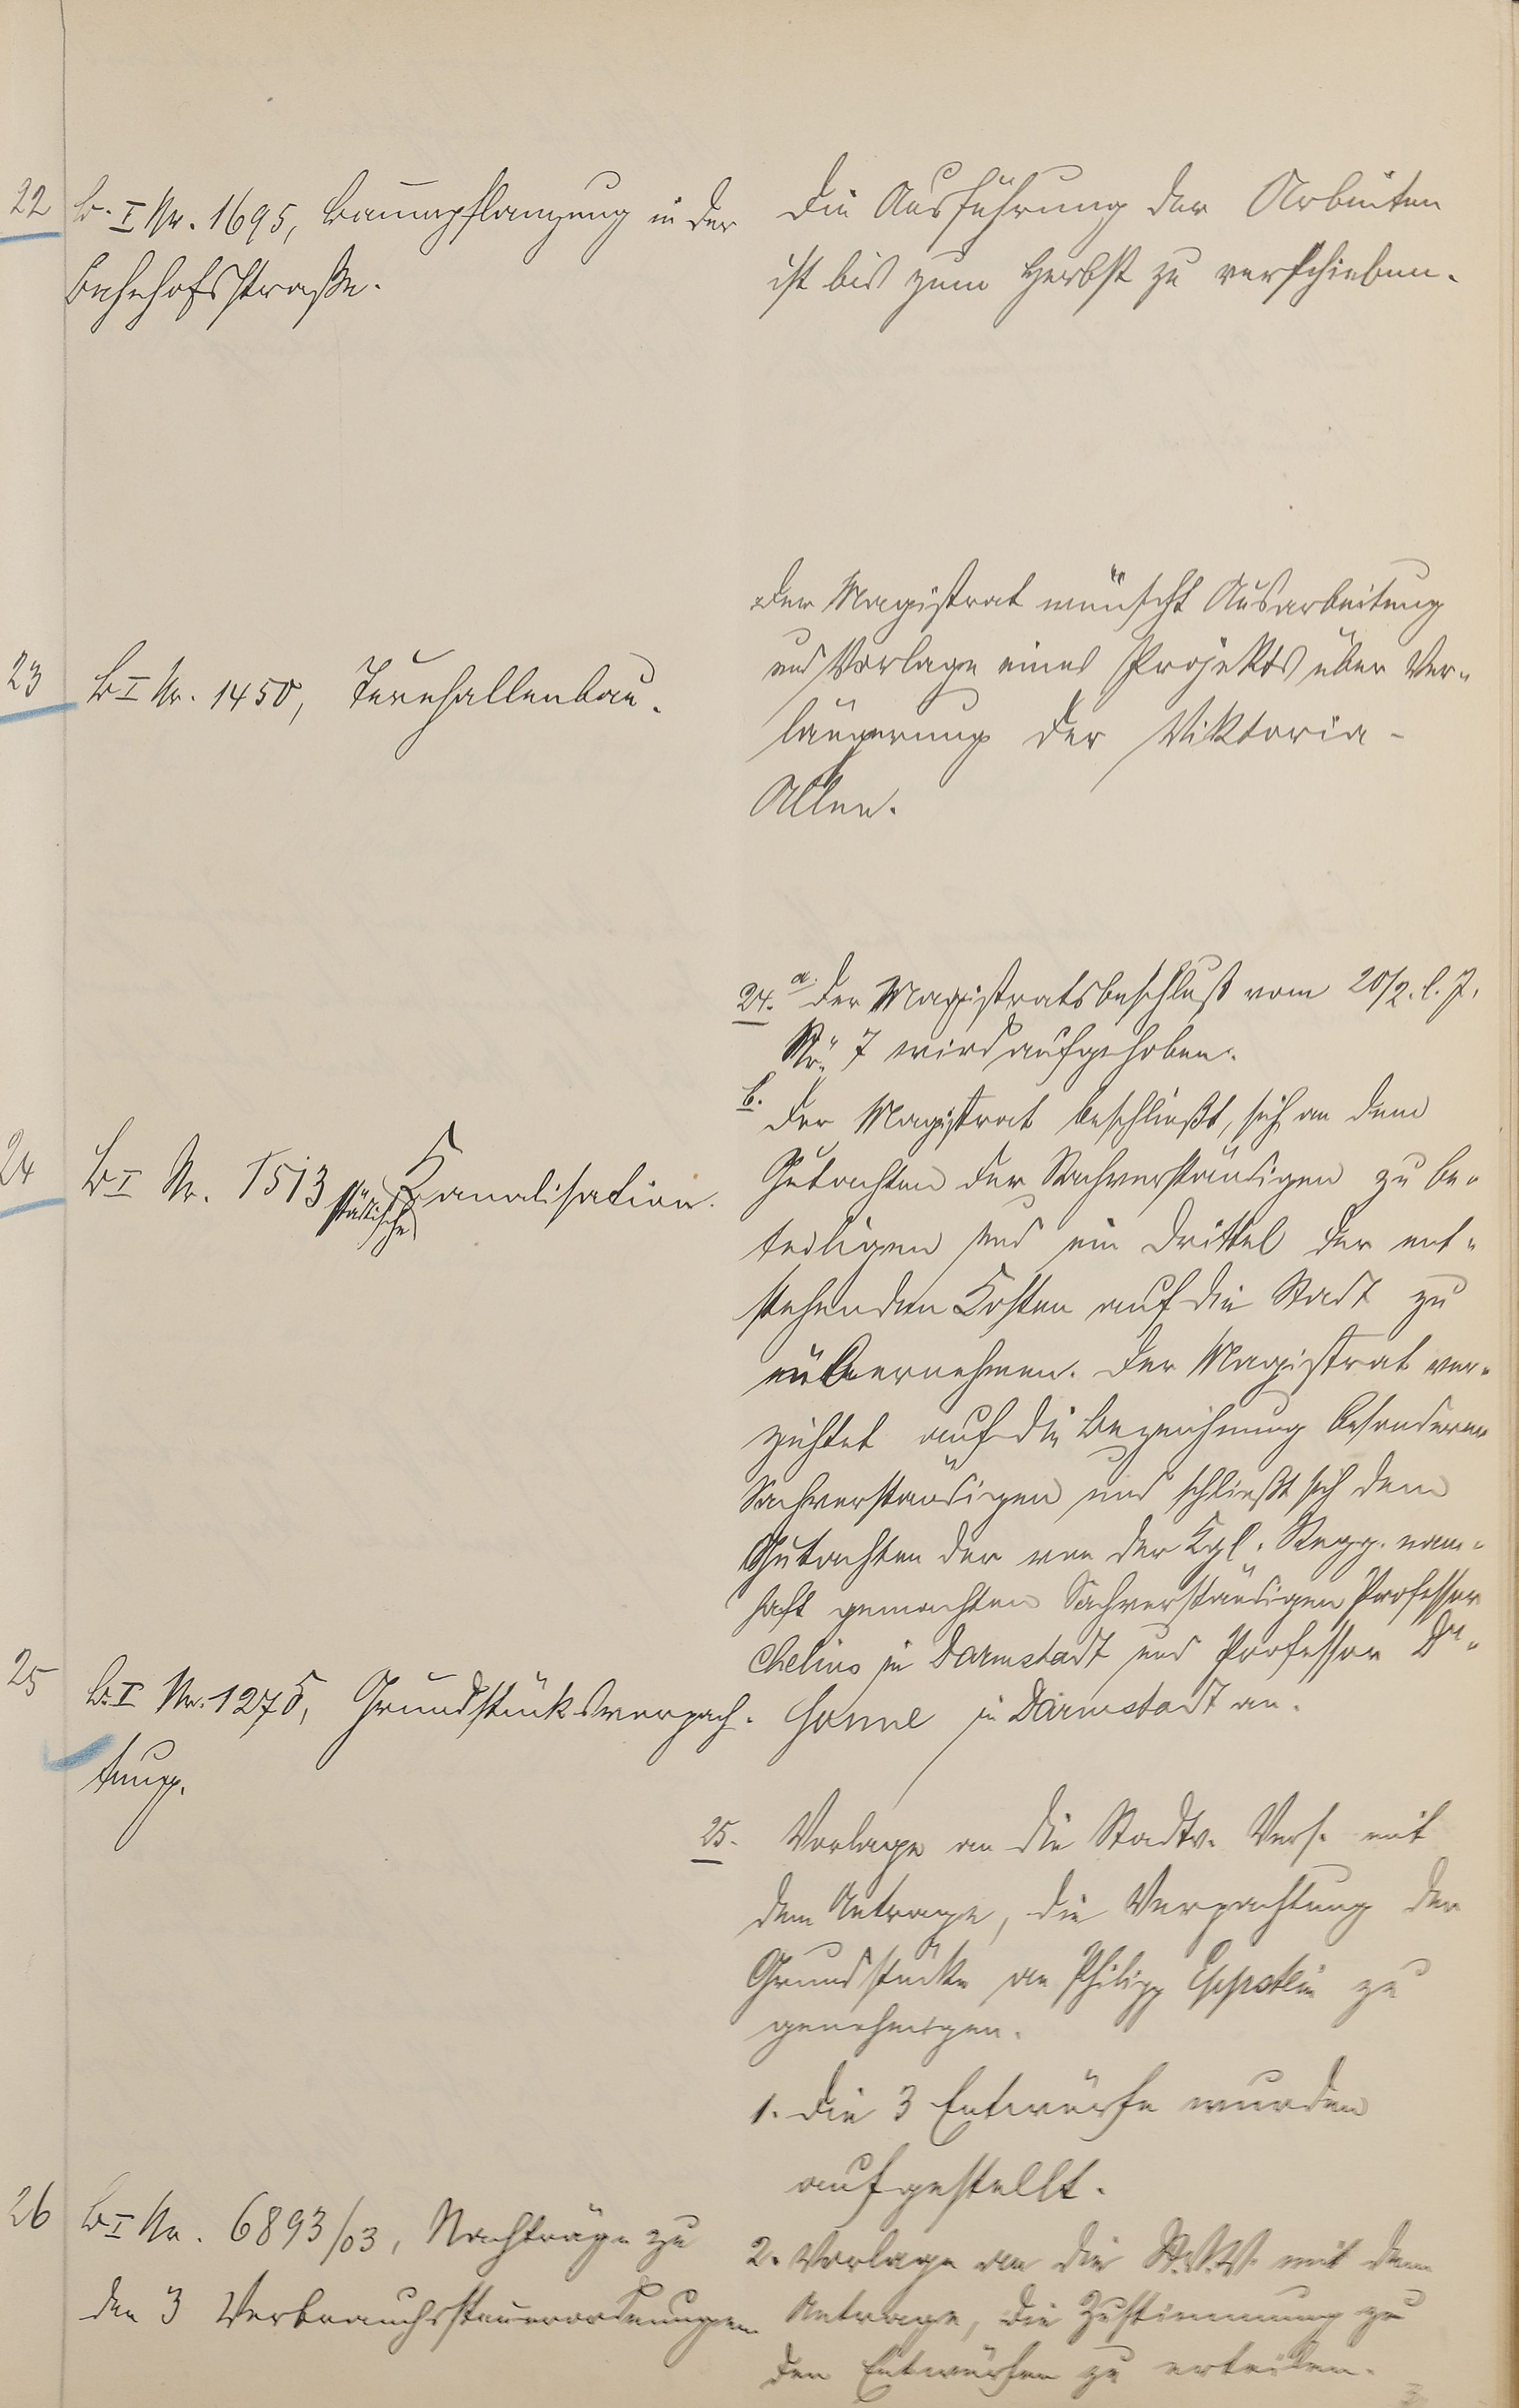 22
B. I Nr. 1695, Baumpflanzung in der
Bahnhofsstraße.
Die Ausführung der Arbeiten
ist bis zum Herbst zu verschieben.
23
B I Nr. 1450, Turnhallenbau.
Der Magistrat wünscht Ausarbeitung
und Vorlage eines Projekts über Ver-
längerung der Viktoria-
Allee.
24
B I Nr. 1513 städtische Kanalisation.
24. a. Der Magistratsbeschluß vom 20/2. l. J.
Nr. 7 wird aufgehoben.
b. Der Magistrat beschließt, sich an dem
Gutachten der Sachverständigen zu be-
teiligen und ein Drittel der ent-
stehenden Kosten auf die Stadt zu
übernehmen. Der Magistrat ver-
zichtet auf die Bezeichnung besonderer
Sachverständigen und schließt sich dem
Gutachten der von der Kgl. Regg. nam-
haft gemachten Sachverständigen Professor
Chelius in Darmstadt und Professor Dr.
Sonne in Darmstadt an.
25
B. I Nr. 1275, Grundstücksverpach-
tung.
25. Vorlage an die Stadtv. Vers. mit
dem Antrage, die Verpachtung der
Grundstücke an Philipp Eppstein zu
genehmigen.
26
B I Nr. 6893/03, Nachträge zu
den 3 Verbrauchssteuerordnungen
1. Die 3 Entwürfe wurden
aufgestellt.
2. Vorlage an die St.V.V. mit dem
Antrage, die Zustimmung zu
den Entwürfen zu erteilen.